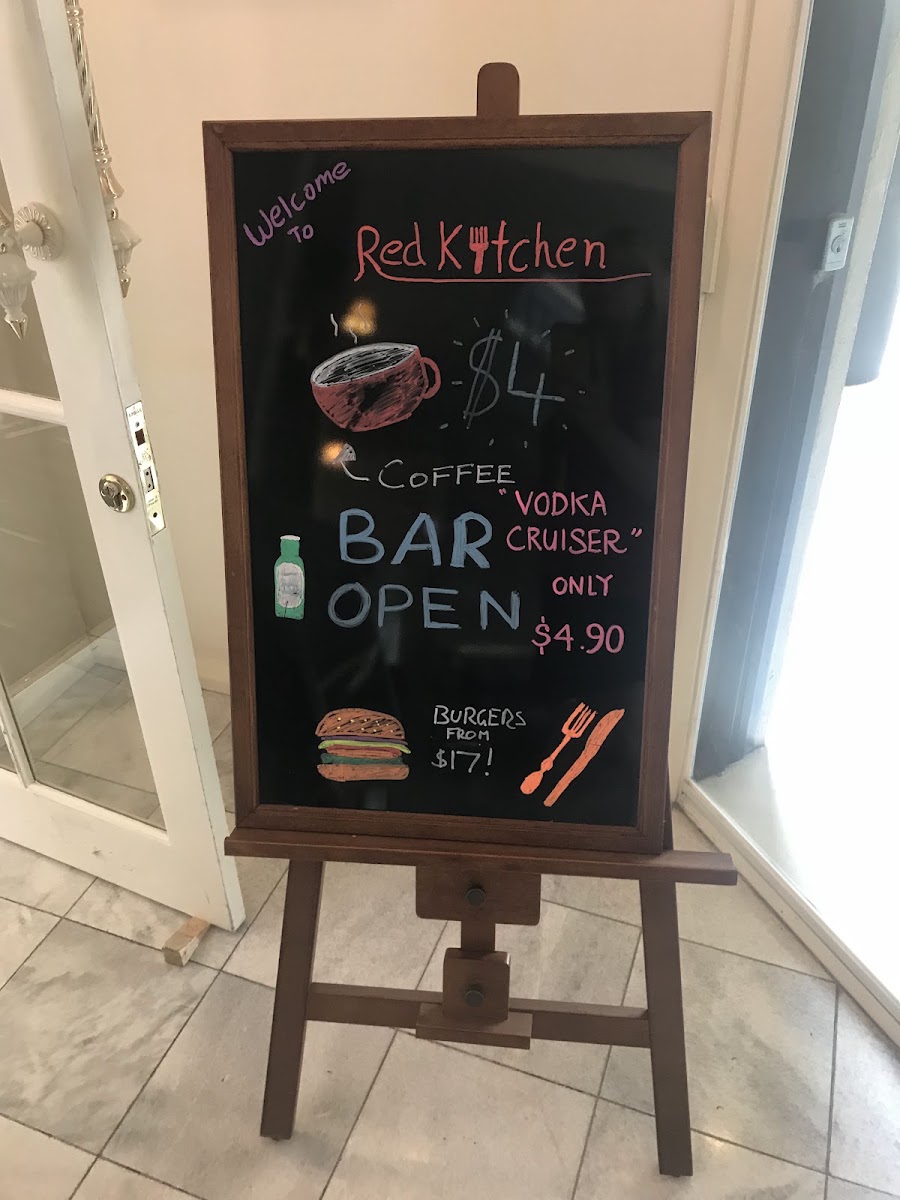 Welcome
To
Red Kitchen
$4
COFFEE
BAR
OPEN
"VODKA
CRUISER"
ONLY
$4.90
BURGERS
FROM
$17!